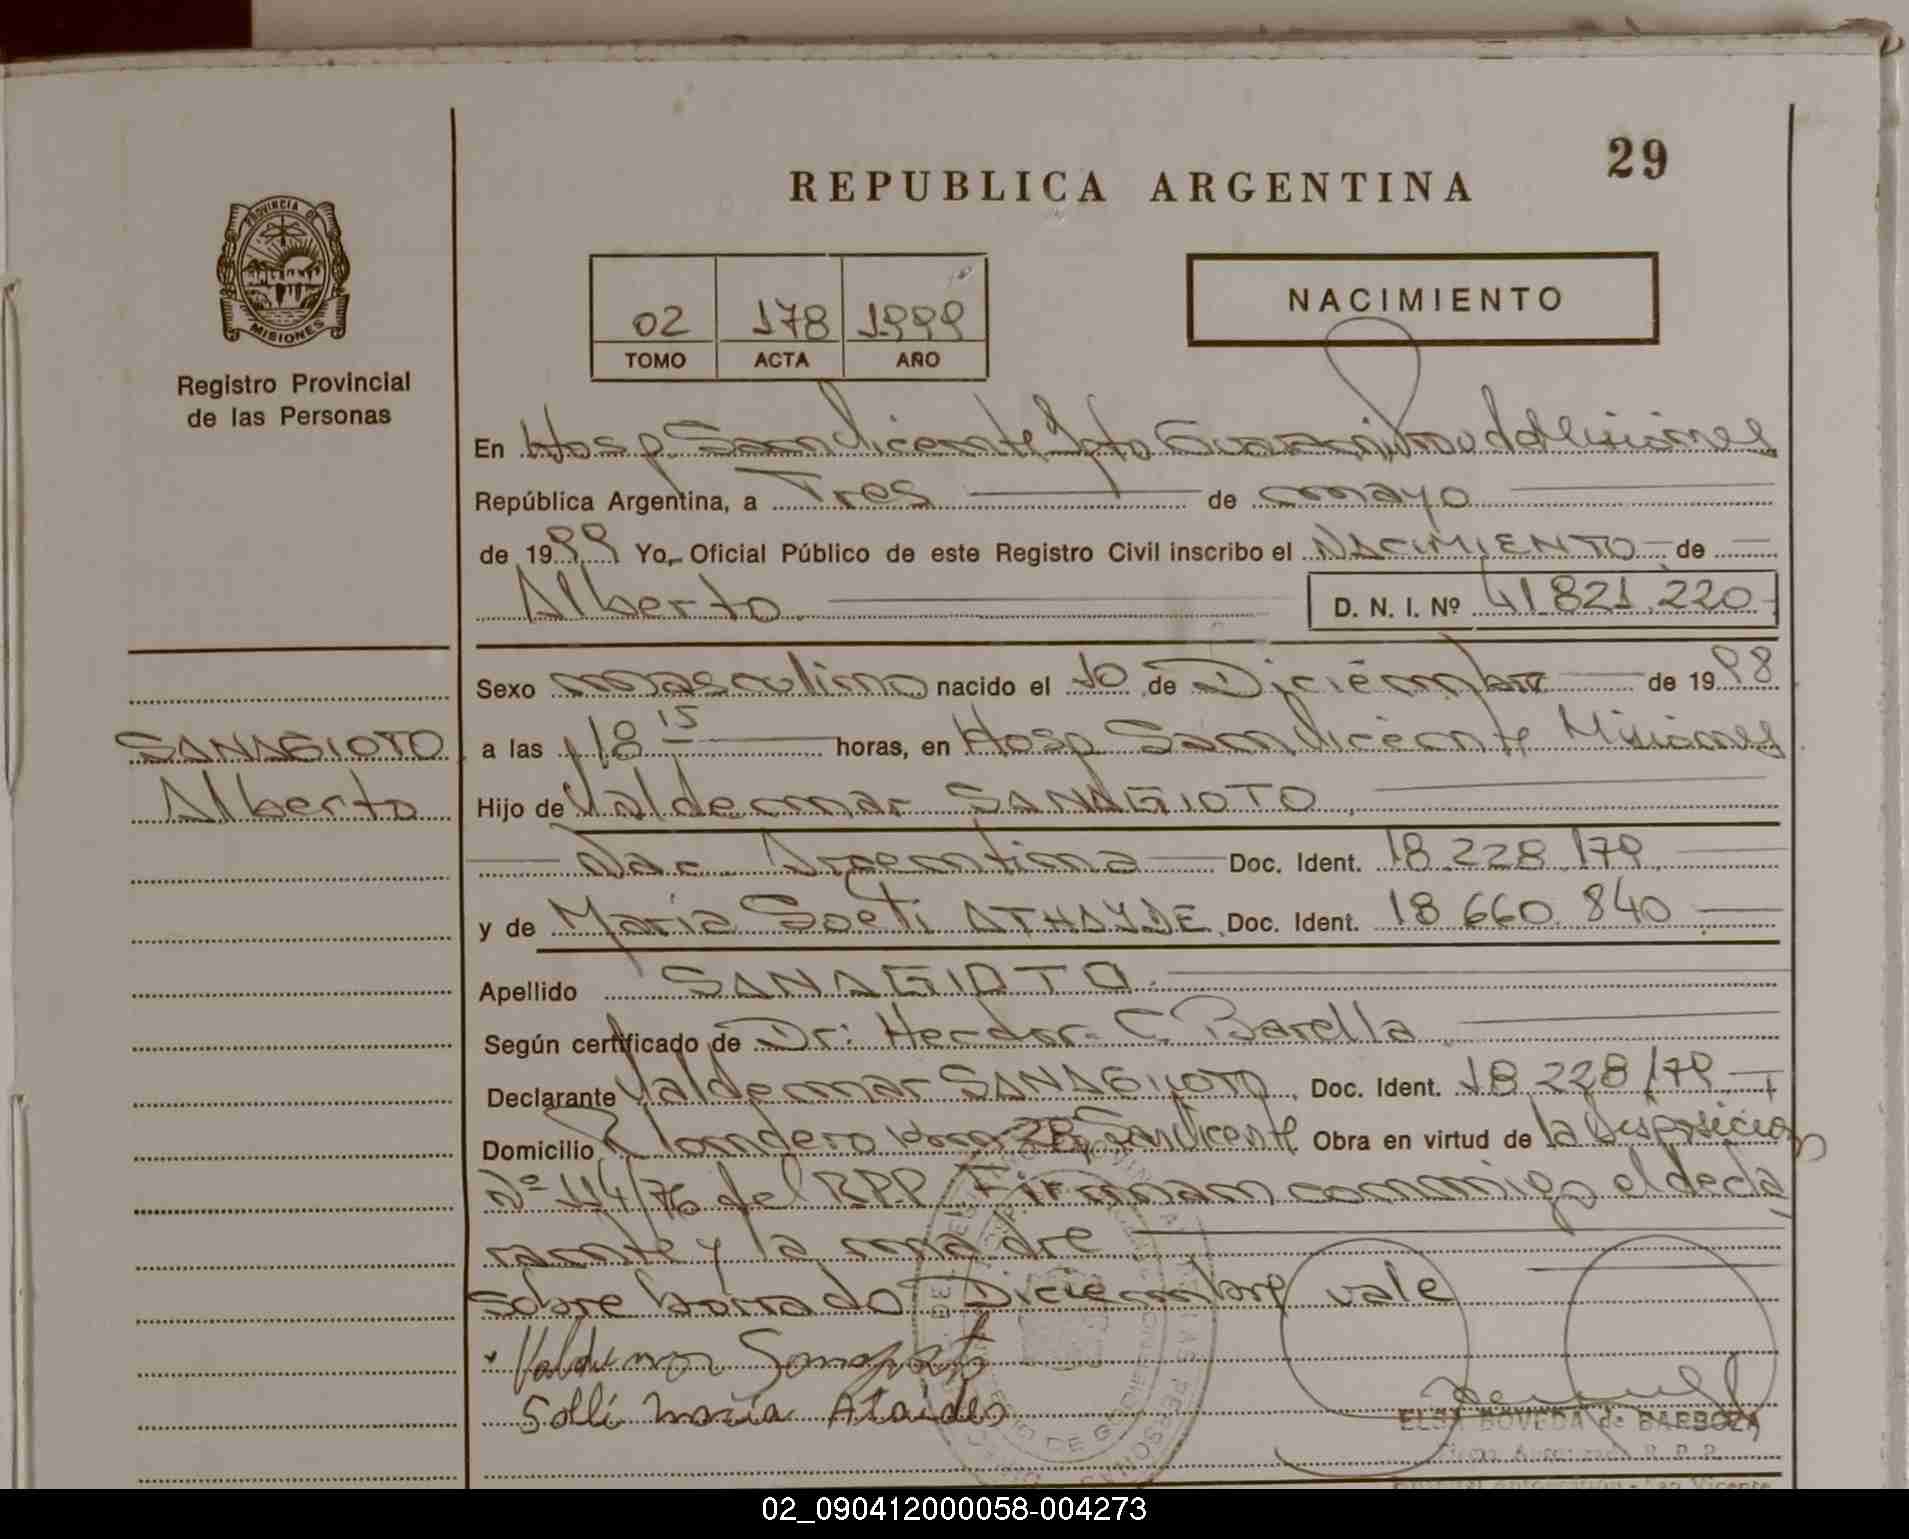 29
REPUBLICA ARGENTINA
PROVINCIA DE
MISIONES
Registro Provincial
de las Personas
NACIMIENTO
02 178 1999
TOMO ACTA AÑO
En Hosp San Vicente Dpto Guarani Prov de Misiones
República Argentina, a Tres de mayo
de 1999 Yo, Oficial Público de este Registro Civil inscribo el NACIMIENTO de
Alberto D. N. I. Nº 41 821 220
Sexo masculino nacido el 10 de Diciembre de 1998
SANAGIOTO
Alberto
a las 18 15 horas, en Hosp San Vicente Misiones
Hijo de Valdemar SANAGIOTO
Nac. Argentina Doc. Ident. 18 228 179
y de Maria Soeti ATHAYDE Doc. Ident. 18 660 840
Apellido SANAGIOTO
Según certificado de Dr: Hector C. Barella
Declarante Valdemar SANAGIOTO Doc. Ident. 18 228 179
Domicilio San Vicente Obra en virtud de la Disposicion
Nº 114/76 del RPP Firman conmigo el decla
rante y la madre
sobre borrado Diciembre vale
Valdemar Sanagioto
Solli maria Ataides
ELSA BOVEDA de BARBOZA
Firma Autorizada R. P. P.
San Vicente
02_090412000058-004273